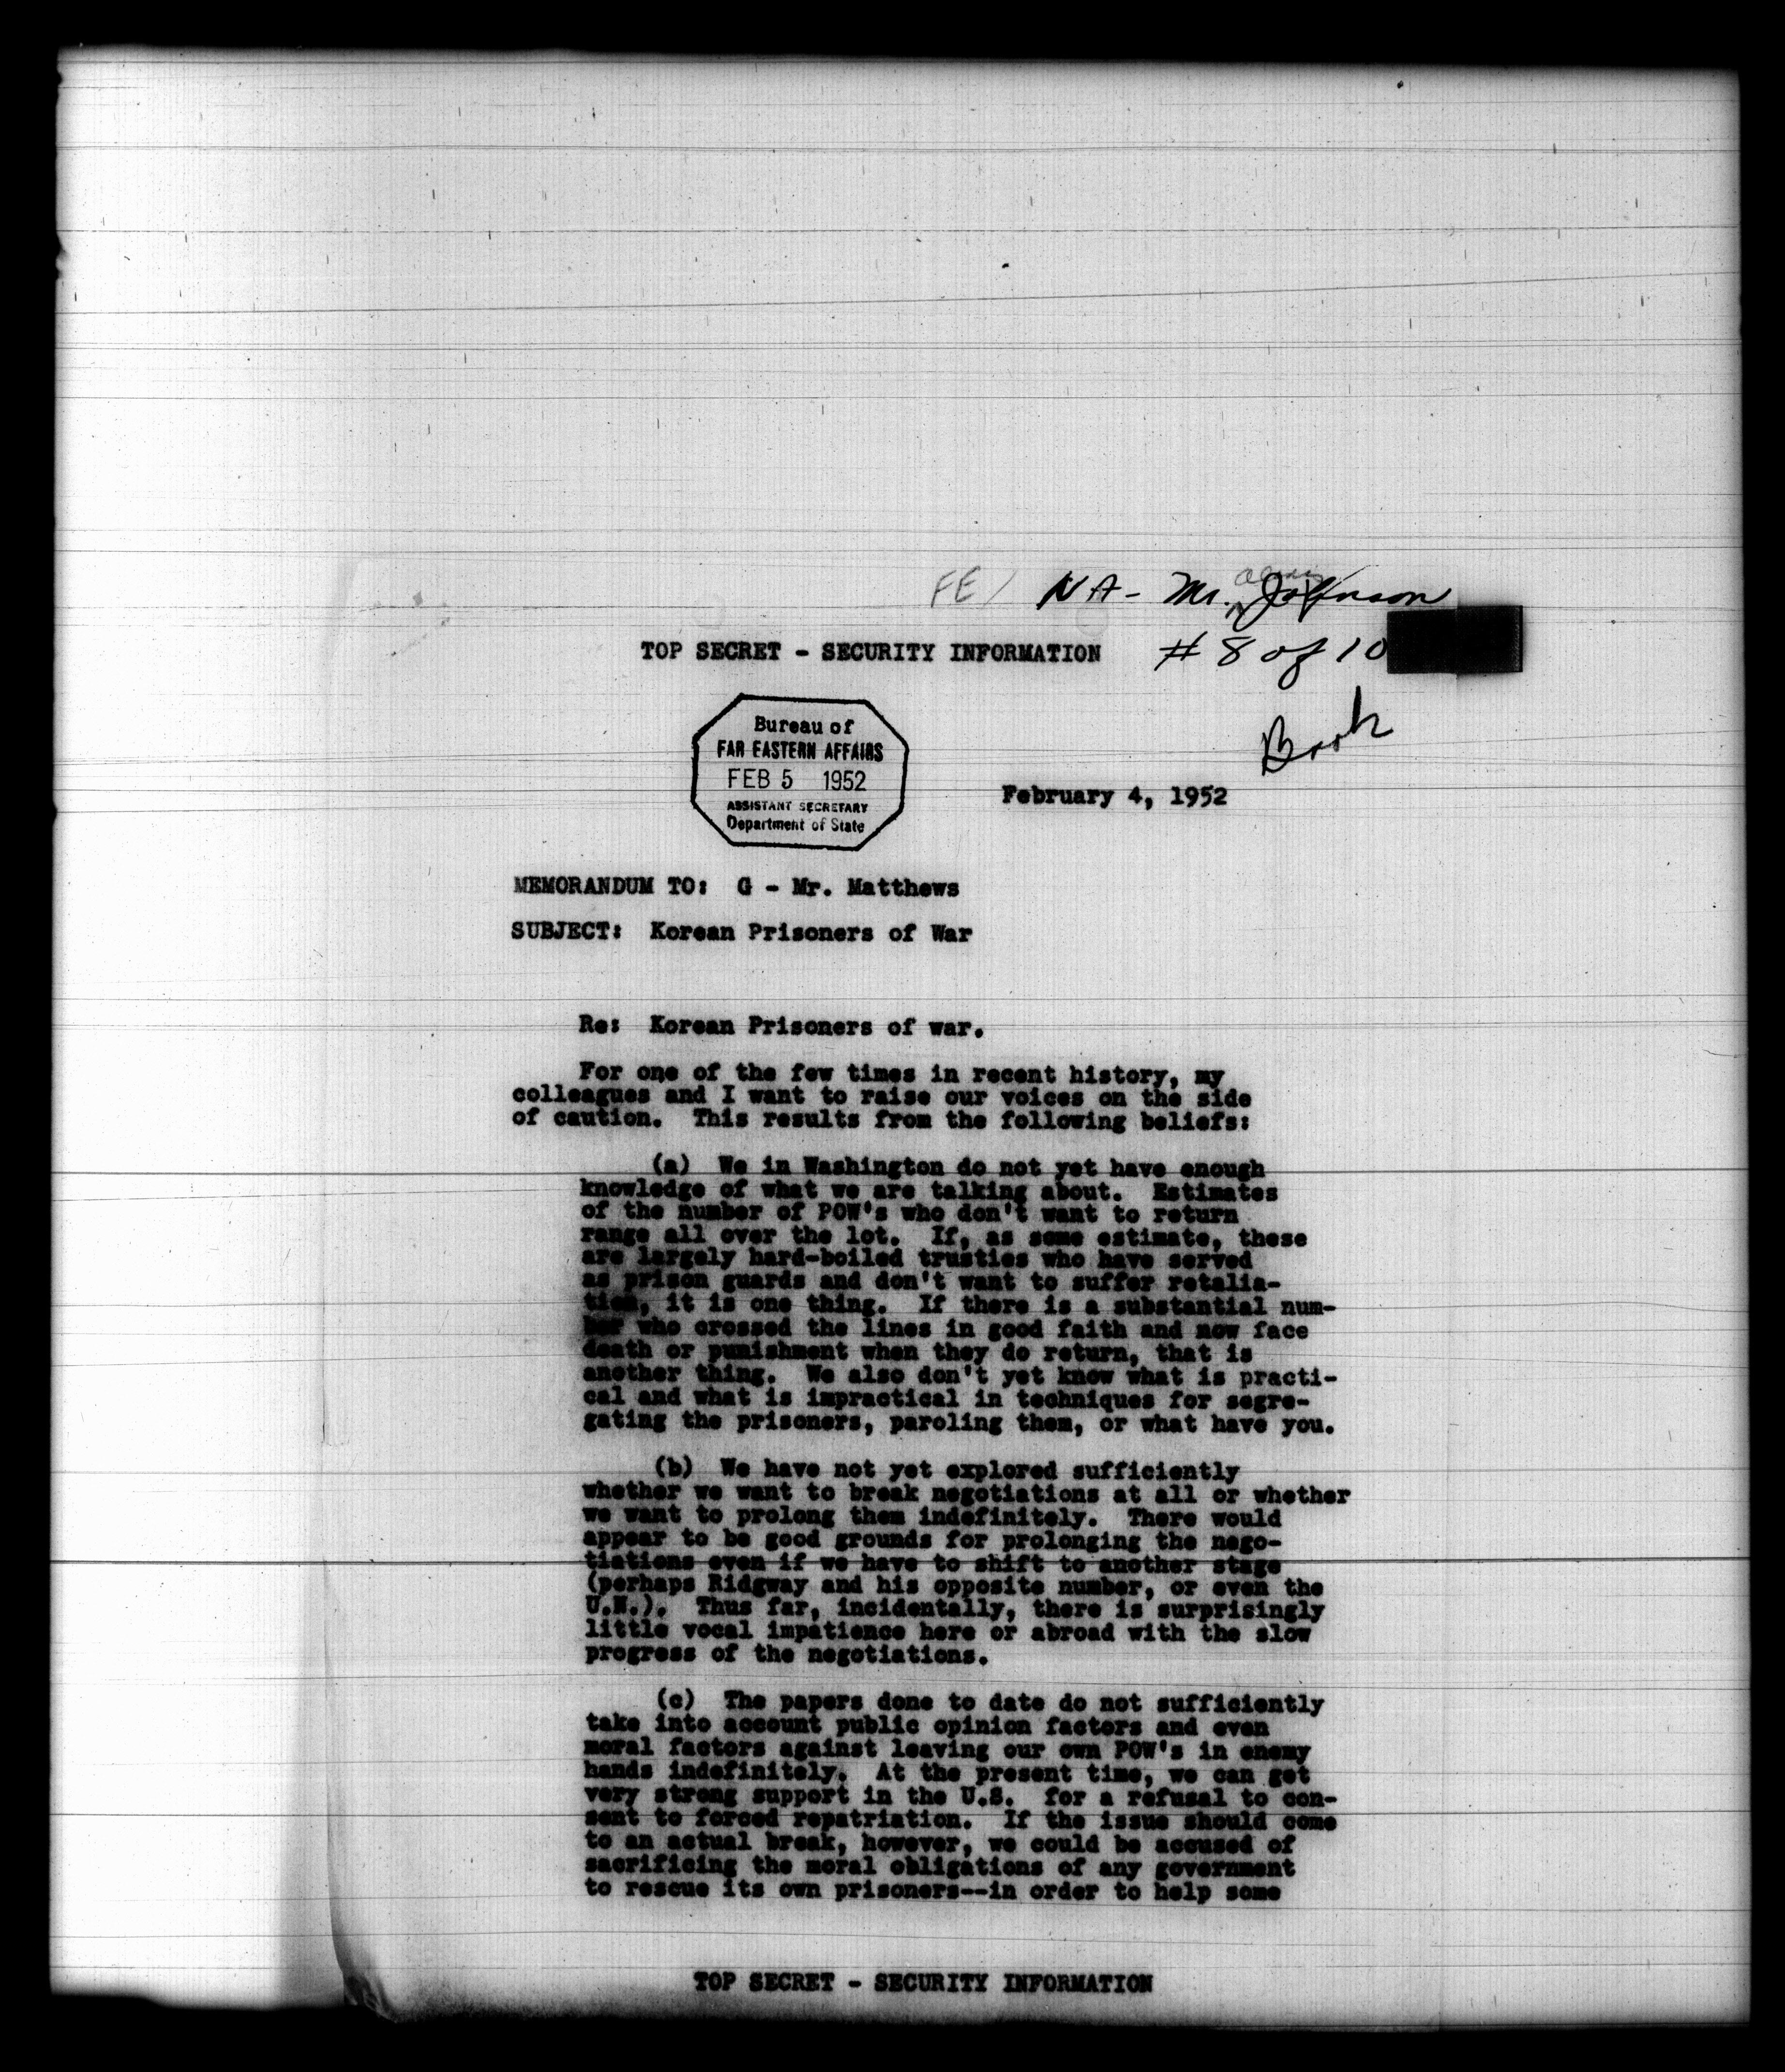 FE/ NA- Mr. Johnson
TOP SECRET - SECURITY INFORMATION # 8 of 10
Bureau of
FAR EASTERN AFFAIRS
FEB 5 1952
ASSISTANT SECRETARY
Department of State
February 4, 1952
MEMORANDUM TO: G - Mr. Matthews
SUBJECT: Korean Prisoners of War
Re: Korean Prisoners of war.
For one of the few times in recent history, my
colleagues and I want to raise our voices on the side
of caution. This results from the following beliefs:
(a) We in Washington do not yet have enough
knowledge of what we are talking about. Estimates
of the number of POW's who don't want to return
range all over the lot. If, as some estimate, these
are largely hard-boiled trusties who have served
as prison guards and don't want to suffer retalia-
tion, it is one thing. If there is a substantial num-
ber who crossed the lines in good faith and now face
death or punishment when they do return, that is
another thing. We also don't yet know what is practi-
cal and what is impractical in techniques for segre-
gating the prisoners, paroling them, or what have you.
(b) We have not yet explored sufficiently
whether we want to break negotiations at all or whether
we want to prolong them indefinitely. There would
appear to be good grounds for prolonging the nego-
tiations even if we have to shift to another stage
(perhaps Ridgway and his opposite number, or even the
U.N.). Thus far, incidentally, there is surprisingly
little vocal impatience here or abroad with the slow
progress of the negotiations.
(c) The papers done to date do not sufficiently
take into account public opinion factors and even
moral factors against leaving our own POW's in enemy
hands indefinitely. At the present time, we can get
very strong support in the U.S. for a refusal to con-
sent to forced repatriation. If the issue should come
to an actual break, however, we could be accused of
sacrificing the moral obligations of any government
to rescue its own prisoners--in order to help some
TOP SECRET - SECURITY INFORMATION